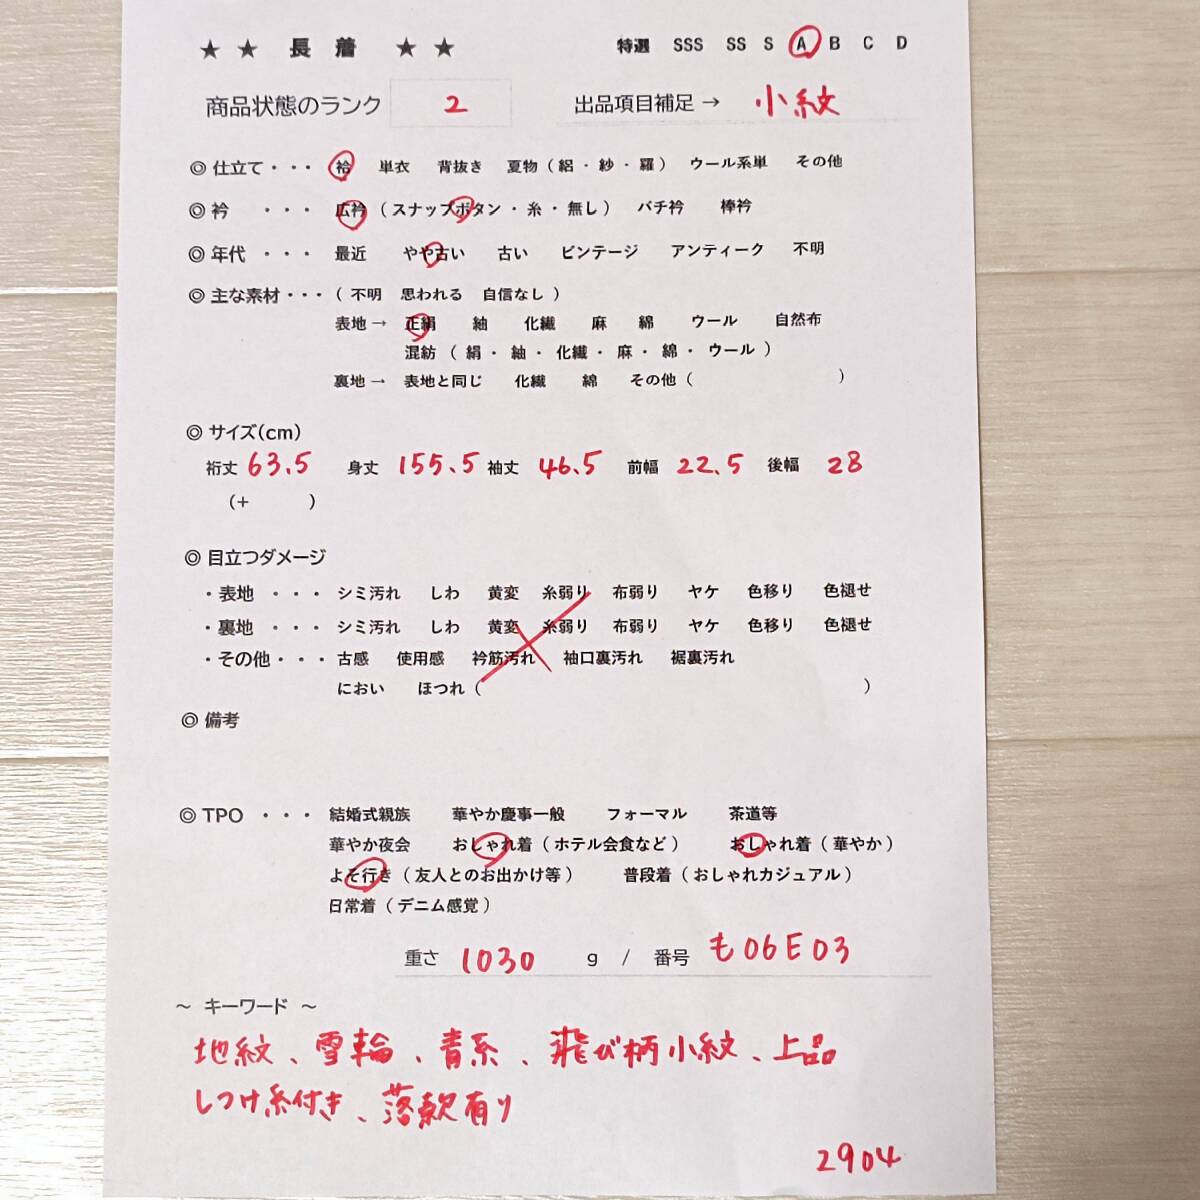 ★ ★ 長 着 ★ ★ 特選 SSS SS S A B C D
商品状態のランク 2 出品項目補足→ 小紋
◎ 仕立て・・・ 袷 単衣 背抜き 夏物(絽・紗・羅) ウール系単 その他
◎ 衿 ・・・ 広衿 (スナップボタン・糸・無し) バチ衿 棒衿
◎ 年代 ・・・ 最近 やや古い 古い ビンテージ アンティーク 不明
◎ 主な素材・・・ (不明 思われる 自信なし)
表地→ 正絹 紬 化繊 麻 綿 ウール 自然布
混紡 (絹・紬・化繊・麻・綿・ウール)
裏地→ 表地と同じ 化繊 綿 その他( )
◎ サイズ(cm)
裄丈 63.5 身丈 155.5 袖丈 46.5 前幅 22.5 後幅 28
(+ )
◎ 目立つダメージ
・表地 ・・・ シミ汚れ しわ 黄変 糸弱り 布弱り ヤケ 色移り 色褪せ
・裏地 ・・・ シミ汚れ しわ 黄変 糸弱り 布弱り ヤケ 色移り 色褪せ
・その他・・・ 古感 使用感 衿筋汚れ 袖口裏汚れ 裾裏汚れ
におい ほつれ( )
◎ 備考
◎ TPO ・・・ 結婚式親族 華やか慶事一般 フォーマル 茶道等
華やか夜会 おしゃれ着(ホテル会食など) おしゃれ着(華やか)
よそ行き(友人とのお出かけ等) 普段着(おしゃれカジュアル)
日常着(デニム感覚)
重さ 1030 g / 番号 も06E03
～ キーワード ～
地紋、雪輪、青系、飛び柄小紋、上品
しつけ糸付き、落款有り
2904